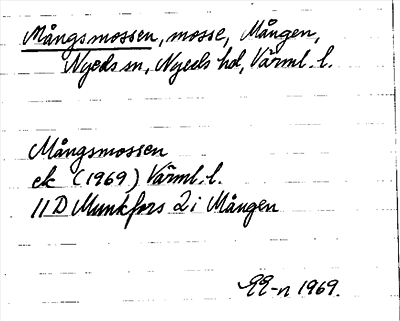 Mångsmossen, mosse, Mången,
Nyeds sn, Nyeds hd, Värml. l.
Mångsmossen
ek (1969) Värml. l.
11D Munkfors 2 i Mången
1969.